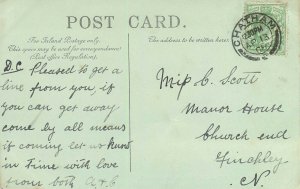 POST CARD.
For Inland Postage only.
This space may be used for correspondence
(Post Office Regulation).
The address to be written here.
CHATHAM
D.C Pleased to get a
line from you, if you
can get away
come by all means
if coming let us know
in time with love
from both A & C
Miss C. Scott
Manor House
Church end
Finchley
N.